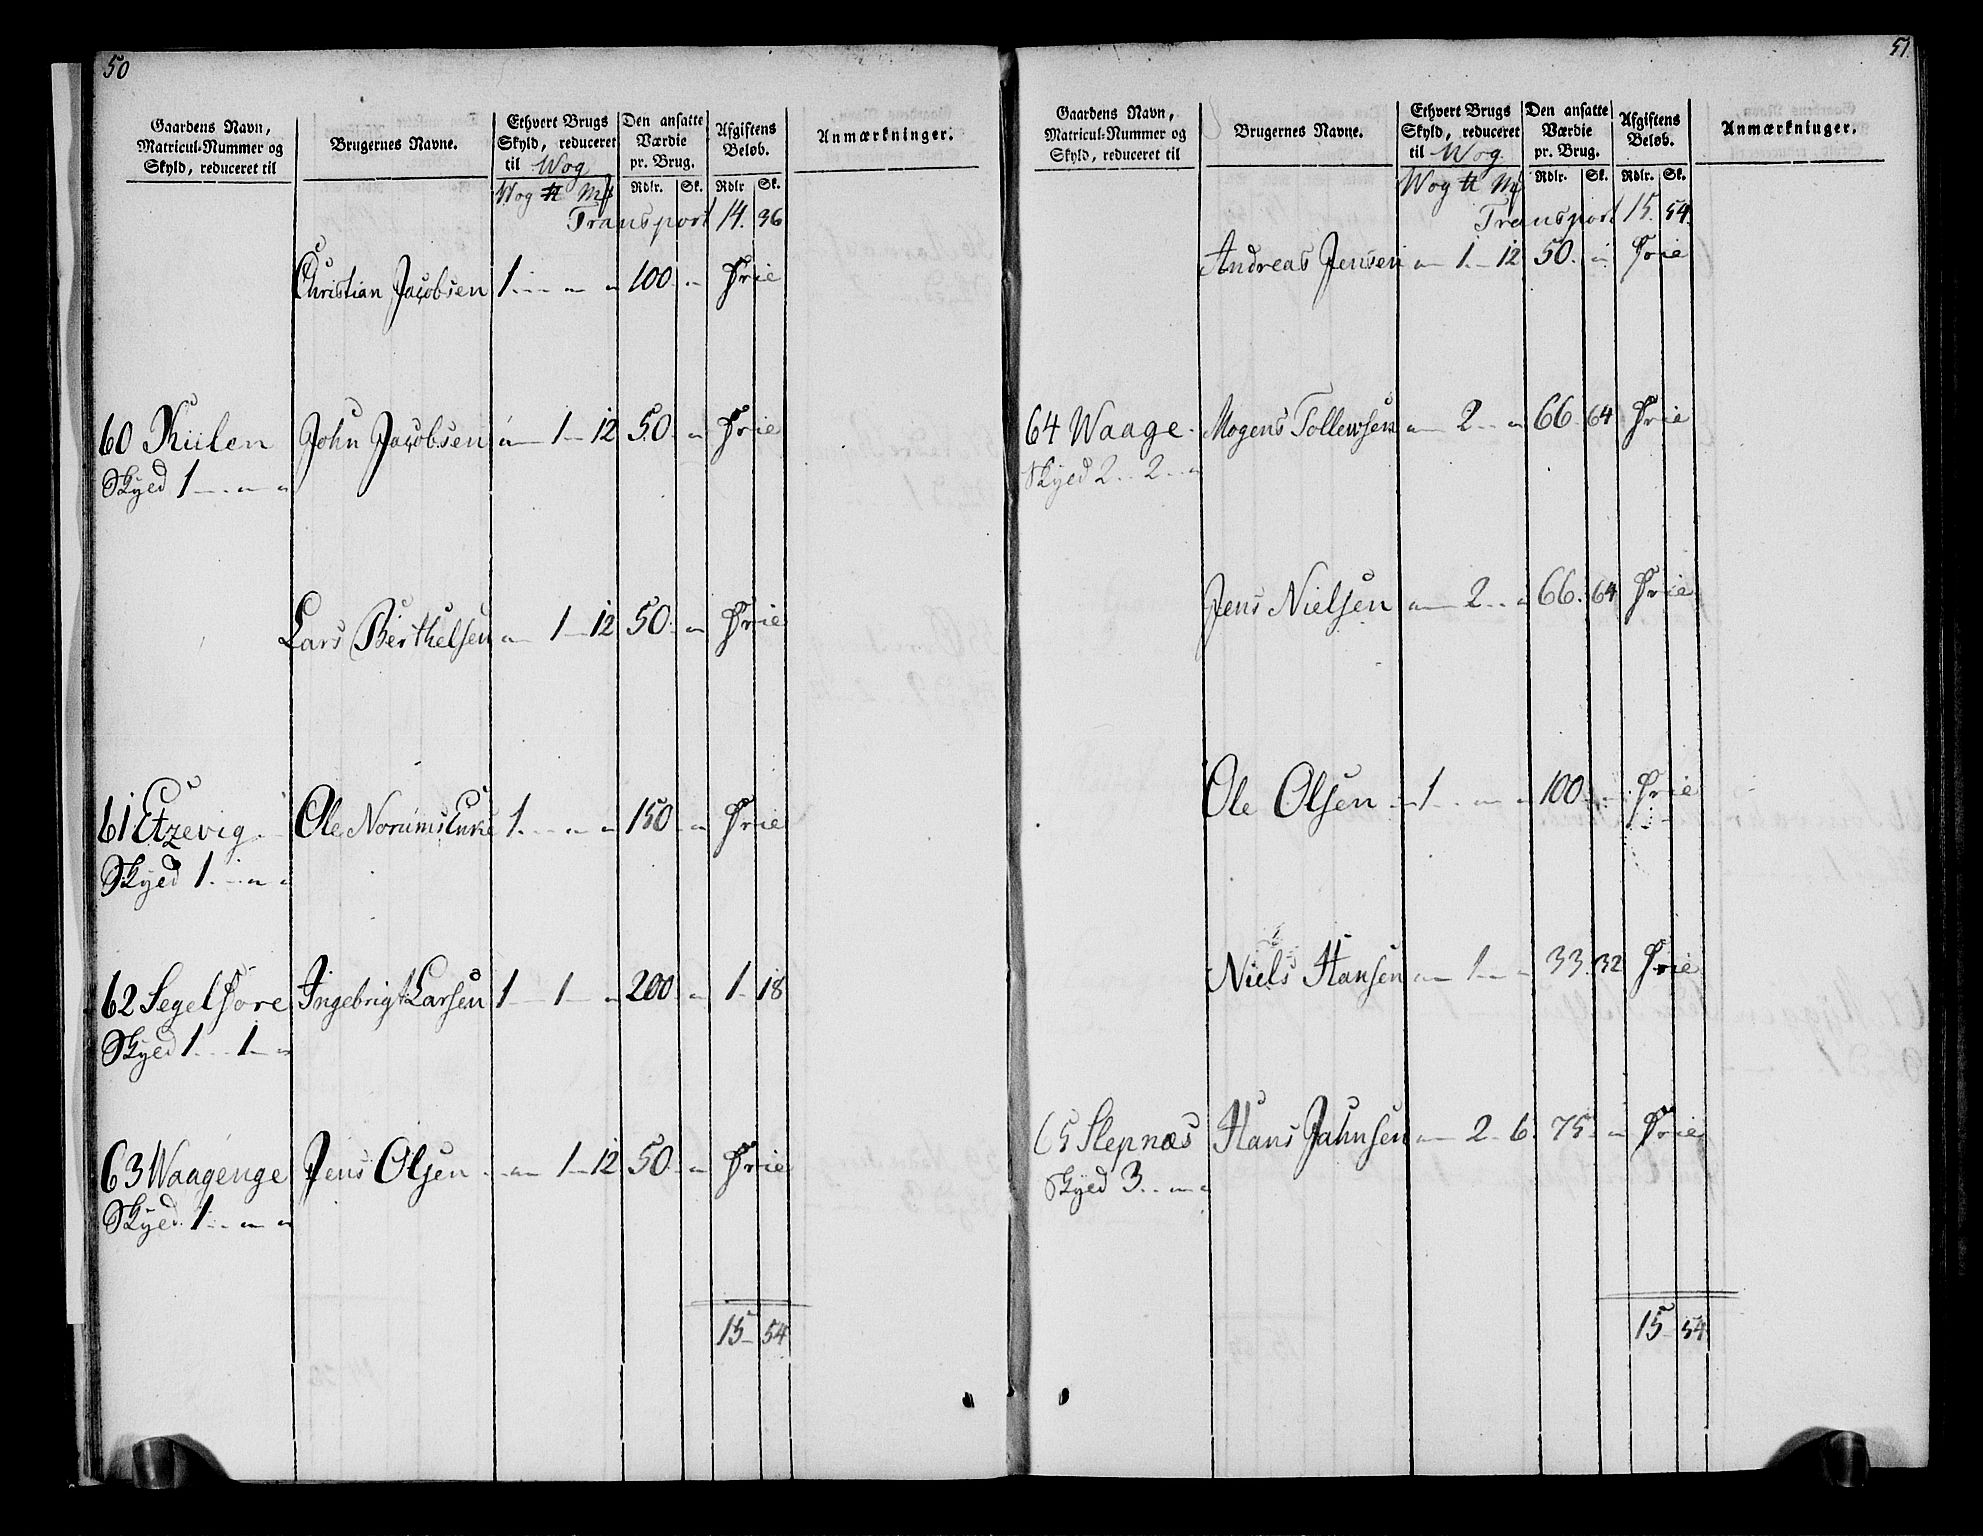 50
Gaardens Navn, Matricul-Nummer og Skyld, reduceret til | Brugernes Navne. | Ethvert Brugs Skyld, reduceret til Wog | Den ansatte Værdie pr. Brug. | Afgiftens Beløb. | Anmærkninger.
Wog ℔ Mf | Rdlr. | Sk. | Rdlr | Sk.
Transport 14. 36
Christian Jacobsen 1 . . „ „ 100 „ Frie
60 Kiilen John Jacobsen „ 1 12 50 „ Frie
Skyed 1 . „ „
Lars Berthelsen „ 1 12 50 „ Frie
61 Etzevig Ole Norums Enke 1 . „ „ 150 „ Frie
Skyed 1 . „ „
62 Segelfore Ingebrigt Larsen 1 1 „ 200 „ 1 18
Skyed 1 . 1 „
63 Waagenge Jens Olsen „ 1 12 50 „ Frie
Skyed 1 . „ „
15 54
51.
Gaardens Navn, Matricul-Nummer og Skyld, reduceret til | Brugernes Navne. | Ethvert Brugs Skyld, reduceret til Wog. | Den ansatte Værdie pr. Brug. | Afgiftens Beløb. | Anmærkninger.
Wog ℔ Mf | Rdlr. | Sk. | Rdlr. | Sk.
Transport 15. 54.
Andreas Jensen „ 1 12 50. „ Frie
64 Waage Mogens Tollewsen „ 2 „ 66 64 Frie
Skyed 2 . 2 „
Jens Nielsen „ 2 . „ 66. 64 Frie
Ole Olsen 1 . „ „ 100 „ Frie
Niels Hansen „ 1 „ 33. 32 Frie
65 Slepnæs Hans Jahnsen „ 2 6. 75. „ Frie
Skyed 3 . „ „
15 54